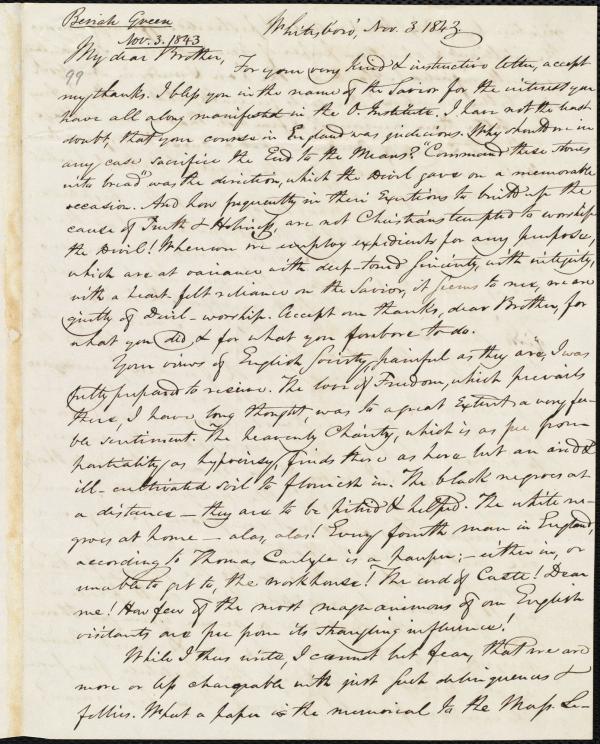 Beriah Green
Nov. 3. 1843
99
Whitesboro', Nov. 3. 1843
My dear Brother,
For your very kind & instructive letter, accept
my thanks. I bless you in the name of the Savior for the interest you
have all along manifested in the O. Institute. I have not the least
doubt, that your course in England was judicious. Why should we in
any case sacrifice the End to the Means? "Command these stones
into bread" was the direction, which the Devil gave on a memorable
occasion. And how frequently in their Exertions to build up the
cause of Truth & Holiness, are not Christians tempted to worship
the Devil! Whenever we employ expedients for any purpose,
which are at variance with deep-toned sincerity, with integrity,
with a heart-felt reliance on the Savior, it seems to me, we are
guilty of Devil-worship. Accept our thanks, dear Brother, for
what you did & for what you forbore to do.
Your views of English Society, painful as they are, I was
fully prepared to receive. The love of Freedom, which prevails
there, I have long thought, was to a great Extent a very fee-
ble sentiment. The heavenly Charity, which is as free from
partiality as hypocrisy, finds there as here but an arid &
ill-cultivated soil to flourish in. The black negroes at
a distance — they are to be pitied & helped. The white ne-
groes at home — alas, alas! Every fourth man in England,
according to Thomas Carlyle is a pauper; — either in, or
unable to get to, the workhouse! The cord of Caste! Dear
me! How few of the most magnanimous of our English
visitants are free from its strangling influence!
While I thus write, I cannot but fear, that we are
more or less chargeable with just such delinquencies &
follies. What a paper is the memorial to the Mass. Le-